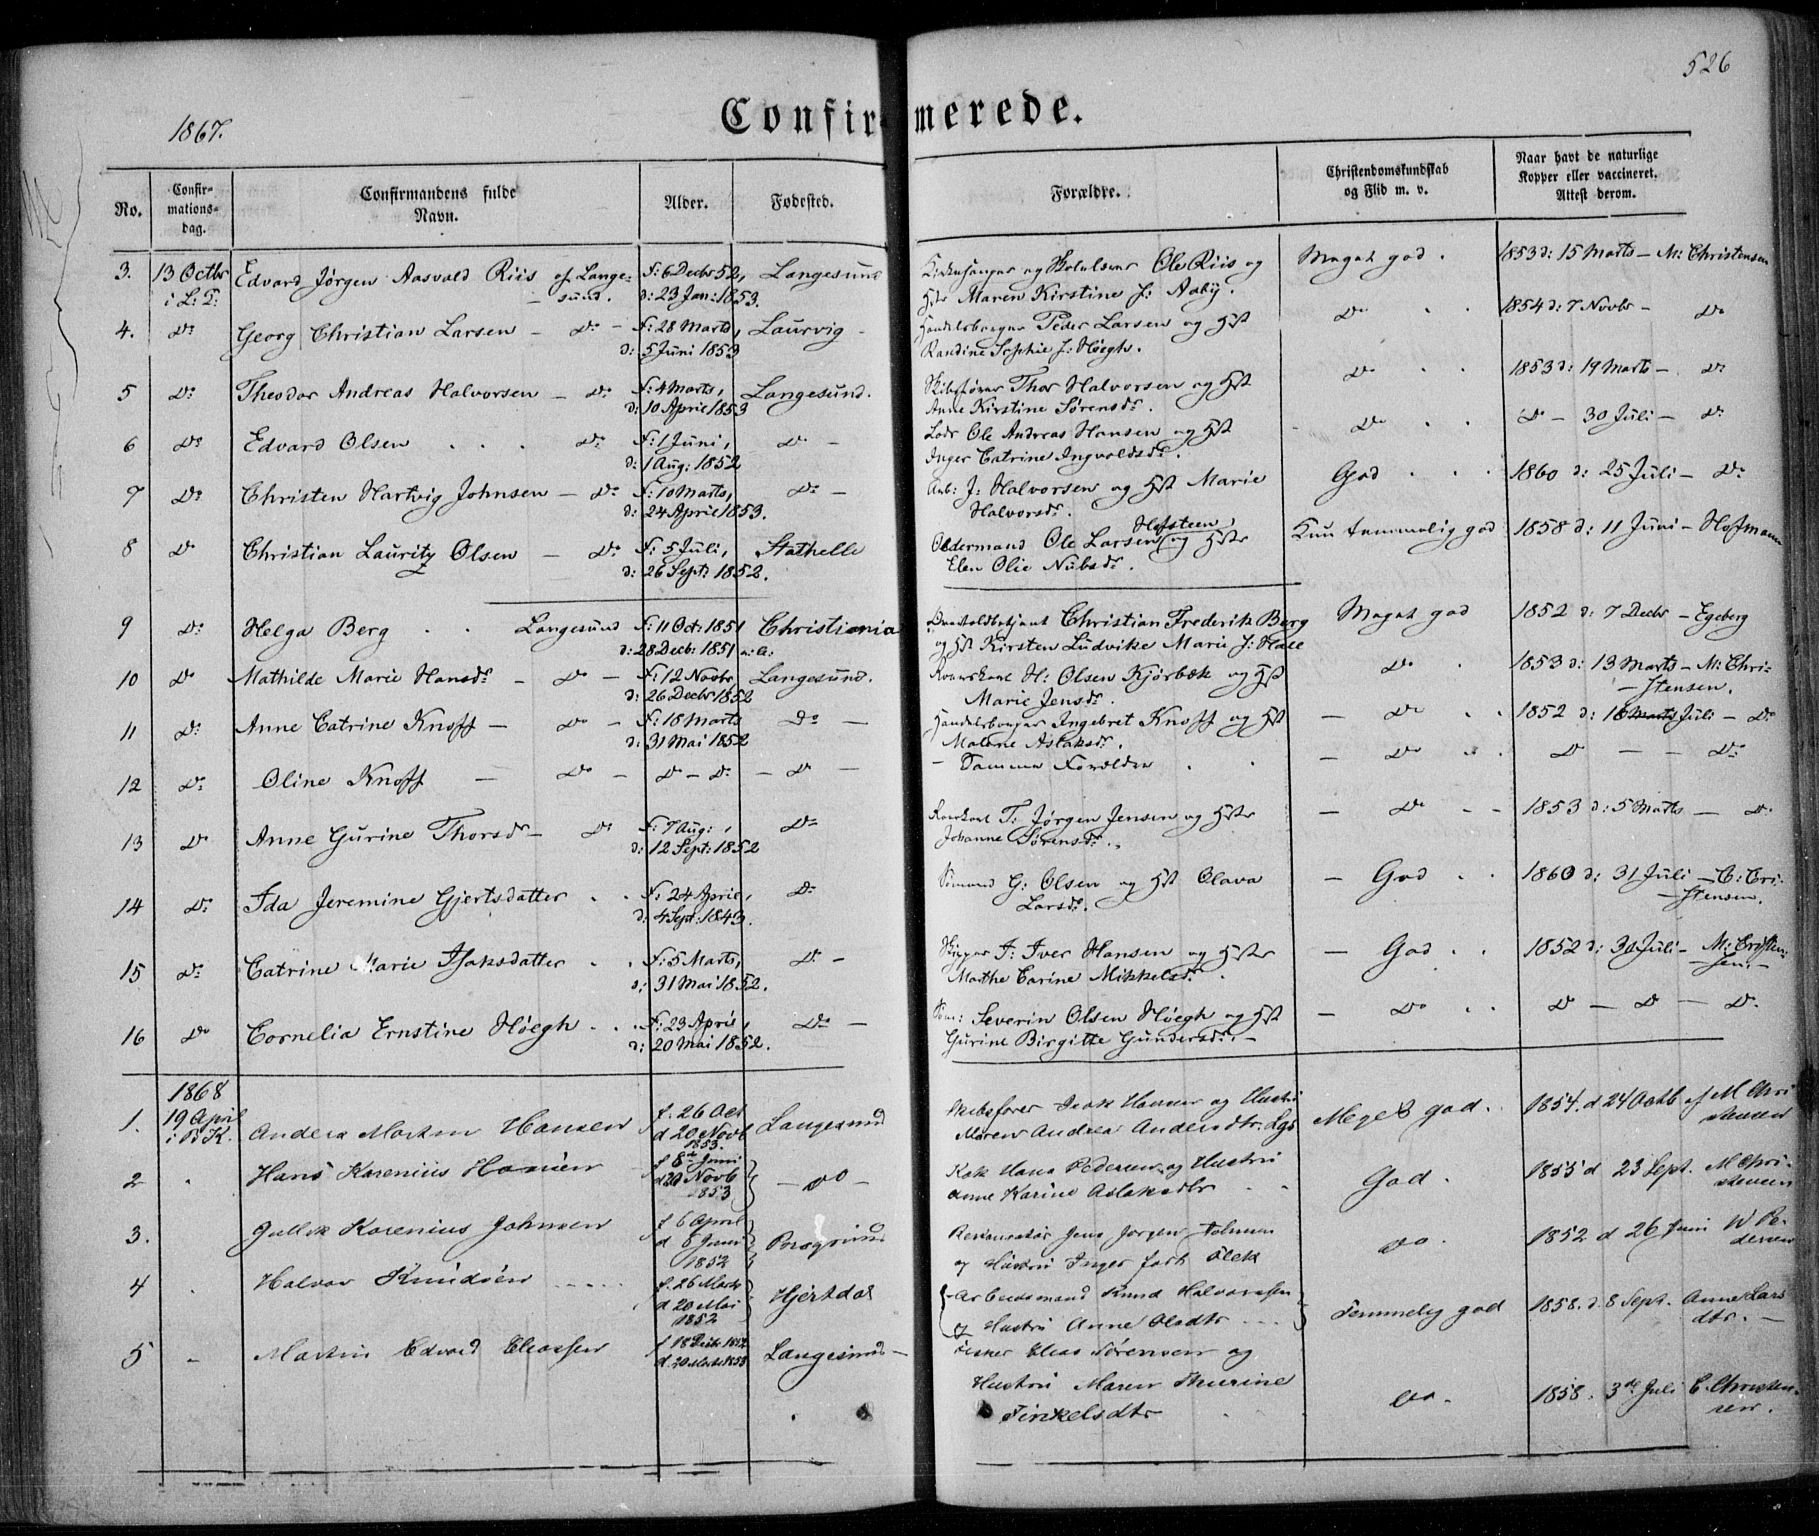 526
1867.
Confirmerede.
No.
Confir-
mations-
dag.
Confirmandens fulde
Navn.
Alder.
Fødested.
Forældre.
Christendomskundskab
og Flid m. v.
Naar havt de naturlige
Kopper eller vaccineret.
Attest derom.
3. 13 Octbr Edvard Jørgen Aasvald Riis af Lange- f: 6 Decbr 52, Langesund Kirkesanger og Skolelærer Ole Riis og Meget god. 1853 d: 15 Marts - M: Christensen
i L: T: - sund. d: 23 Jan: 1853. Hstr Maren Kirstine f: Aaby.
4. Do Georg Christian Larsen - Do - f: 28 Marts, Laurvig - Handelsborger Peder Larsen og Hst Do 1854 d: 7 Novbr - Do
d: 5 Juni 1853 Randine Sophie f: Høegh.
5 Do Theodor Andreas Halvorsen - Do f: 4 Marts, Langesund. Skibsfører Thor Halvorsen og Hst Do 1853 d: 19 Marts - Do
d: 10 April 1853 Anne Kirstine Sørensdr.
6 Do Edvard Olsen Do f: 1 Juni, Do - Lods Ole Andreas Hansen og Hst Do Do - 30 Juli - Do
d: 1 Aug: 1852 Inger Catrine Ingvoldsdr.
7 Do Christen Hartvig Johnsen - Do f: 10 Marts, Do - Arb: J: Halvorsen og Hst Marie God 1860 d: 25 Juli - Do
d: 24 April 1853. Halvorsdr.
8 Do Christian Lauritz Olsen - Do f: 5 Juli, Stathelle Oldermand Ole Larsen Hofsteen, og Hstr Kun temmelig god 1858 d: 11 Juni - Hofmann
d: 26 Sept: 1852. Elen Olie Nubsdr.
9 Do Helga Berg Langesund f: 11 Oct: 1851 Christiania Christian Frederik Berg Meget god 1852 d: 7 Decbr - Egeberg
d: 28 Decb: 1851 og Hst Kirsten Ludvike Marie f:
10 Do Mathilde Marie Hansdr - Do - f: 12 Novbr Langesund. H: Olsen Kjørbæk og Hst Do 1853 d: 13 Marts - M: Chri-
d: 26 Decbr 1852 Marie Jensdr. - stensen.
11 Do Anne Catrine Knoff - Do - f: 18 Marts Do - Handelsborger Ingebret Knoff og Hst - Do 1852 d: 18 Juli - Do
d: 31 Mai 1852 Malene Aslaksdr.
12 Do Oline Knoff - Do - Do - Do - Do - - Samme Forældre - Do Do - - Do
13 Do Anne Gurine Thorsdr - Do f: 7 Aug:, Do T: Jørgen Jensen og Hstr - Do 1853 d: 5 Marts - Do
d: 12 Sept: 1852 Johanne Sørensdr.
14 Do Ida Jeremine Gjertsdatter f: 24 April, Do Sømand G: Olsen og Hst Olava - God 1860 d: 31 Juli - C: Cri-
d: 4 Sept: 1843. Larsdr. - stensen.
15 Do Catrine Marie Isaksdatter f: 5 Marts, Do - Skipper I: Iver Hansen og Hstr - God 1852 d: 30 Juli - M: Cristen-
d: 31 Mai 1852. Marthe Carine Mikkelsdr. - sen. -
16 Do Cornelia Ernstine Høegh f: 23 April, Do - Søm: Severin Olsen Høegh og Hst - Do Do - Do - Do
d: 20 Mai 1852. Gurine Birgitte Gundersdr. -
1868
1. 19 April Anders Morten Hansen f. 26 Oct Langesund Skibsfører Isak Hansen og Hustru Meget god. 1854. d 24 Octb af M Chri-
i B K. d 20 Novb Maren Andrea Andersdtr. Lgs stensen
1853.
2 Hans Karenius Hansen f 8de Juni - do - Kok Hans Pedersen og Hustru God. 1855 d 23 Sept. M Chri-
d 20 Novb Anne Karine Aslaksdtr stensen
1853
3. Gullik Karenius Johnsen f 6 April Porsgrund Restauratør Jens Jørgen do. 1852 d 26 Juni W Pe-
d 6 Juni og Hustru Inger født dersen
1852
4 Halvor Knudsen f. 26 Marts Hjertdal Arbeidsmand Knud Halvorsen Temmelig god 1858. d. 8 Sept. Anne Lars
d 20 Mai og Hustru Anne Olsdtr dtr. -
1852
5 Martin Edvard Eliassen f 18 1852 Langesund - Fisker Elias Sørensen og do. 1858. 3de Juli C. Christen-
d 20 Marts 1853 Hustru Maren Thurine sen.
Tinkelsdtr